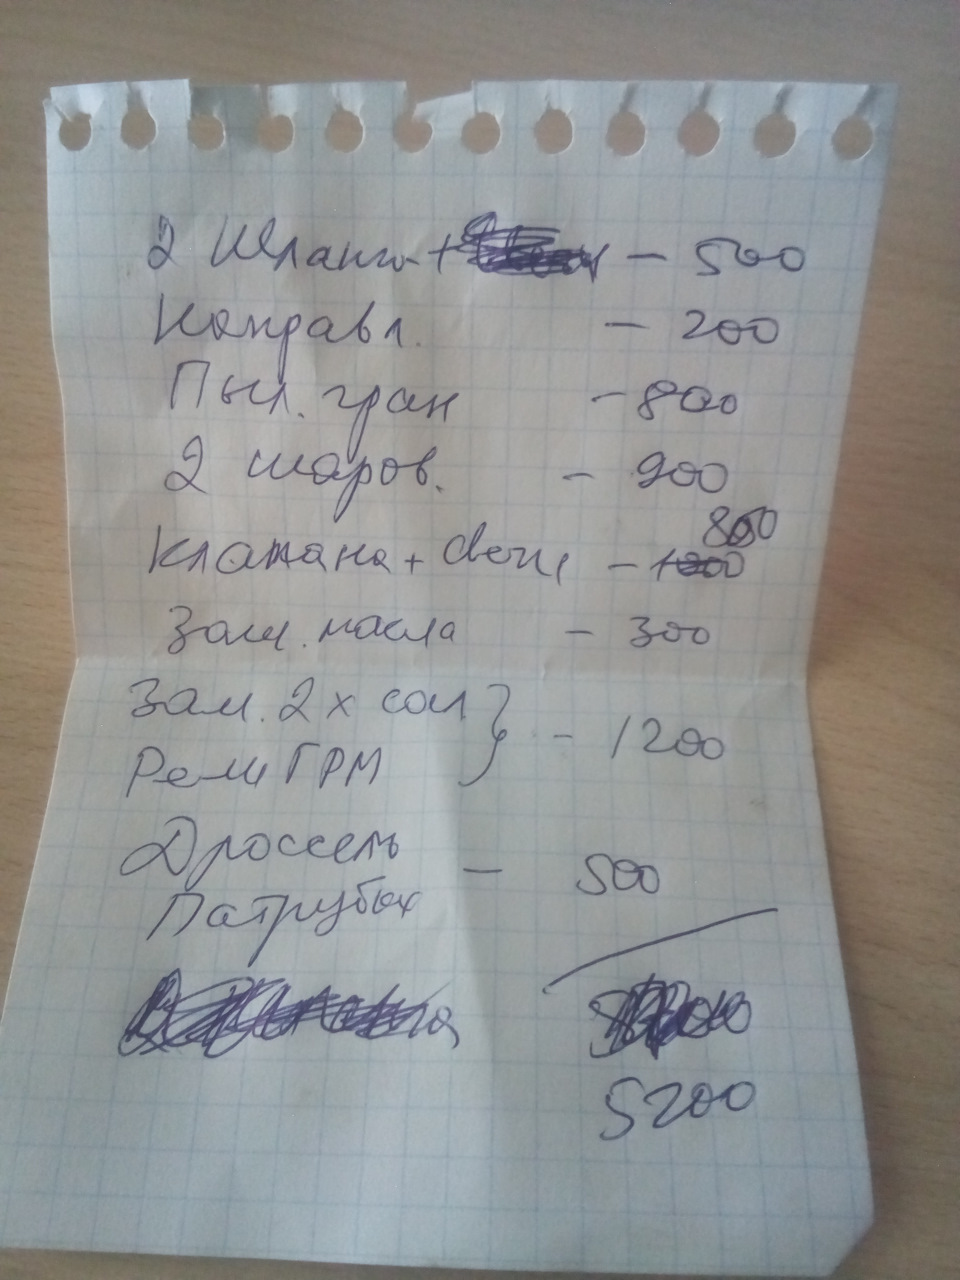 2 Шланги + - 500
Направл. - 200
Пыл. гран - 800
2 шаров. - 900
800
Клапана + свечи -
Зам. масла - 300
Зам. 2х сал } - 1200
Рем ГРМ
Дроссель - 500
Патрубок
5200